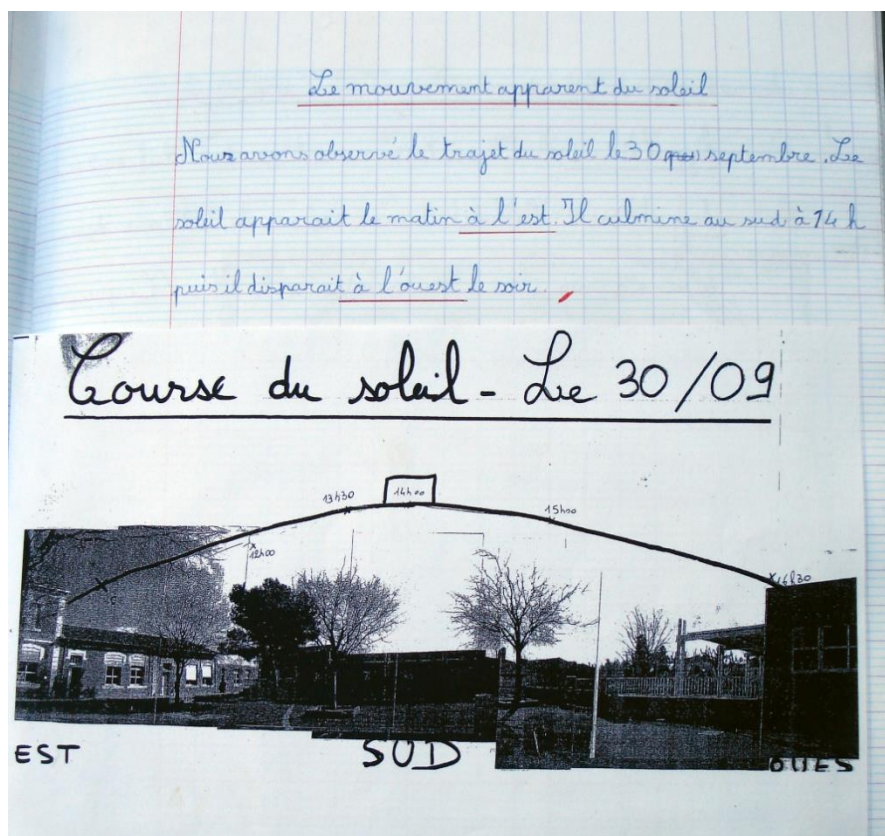 Le mouvement apparent du soleil
Nous avons observé le trajet du soleil le 30 septembre. Le
soleil apparait le matin à l'est. Il culmine au sud à 14 h
puis il disparait à l'ouest le soir.
Course du soleil - Le 30/09
13h30
14h00
15h00
12h00
16h30
EST
SUD
OUES